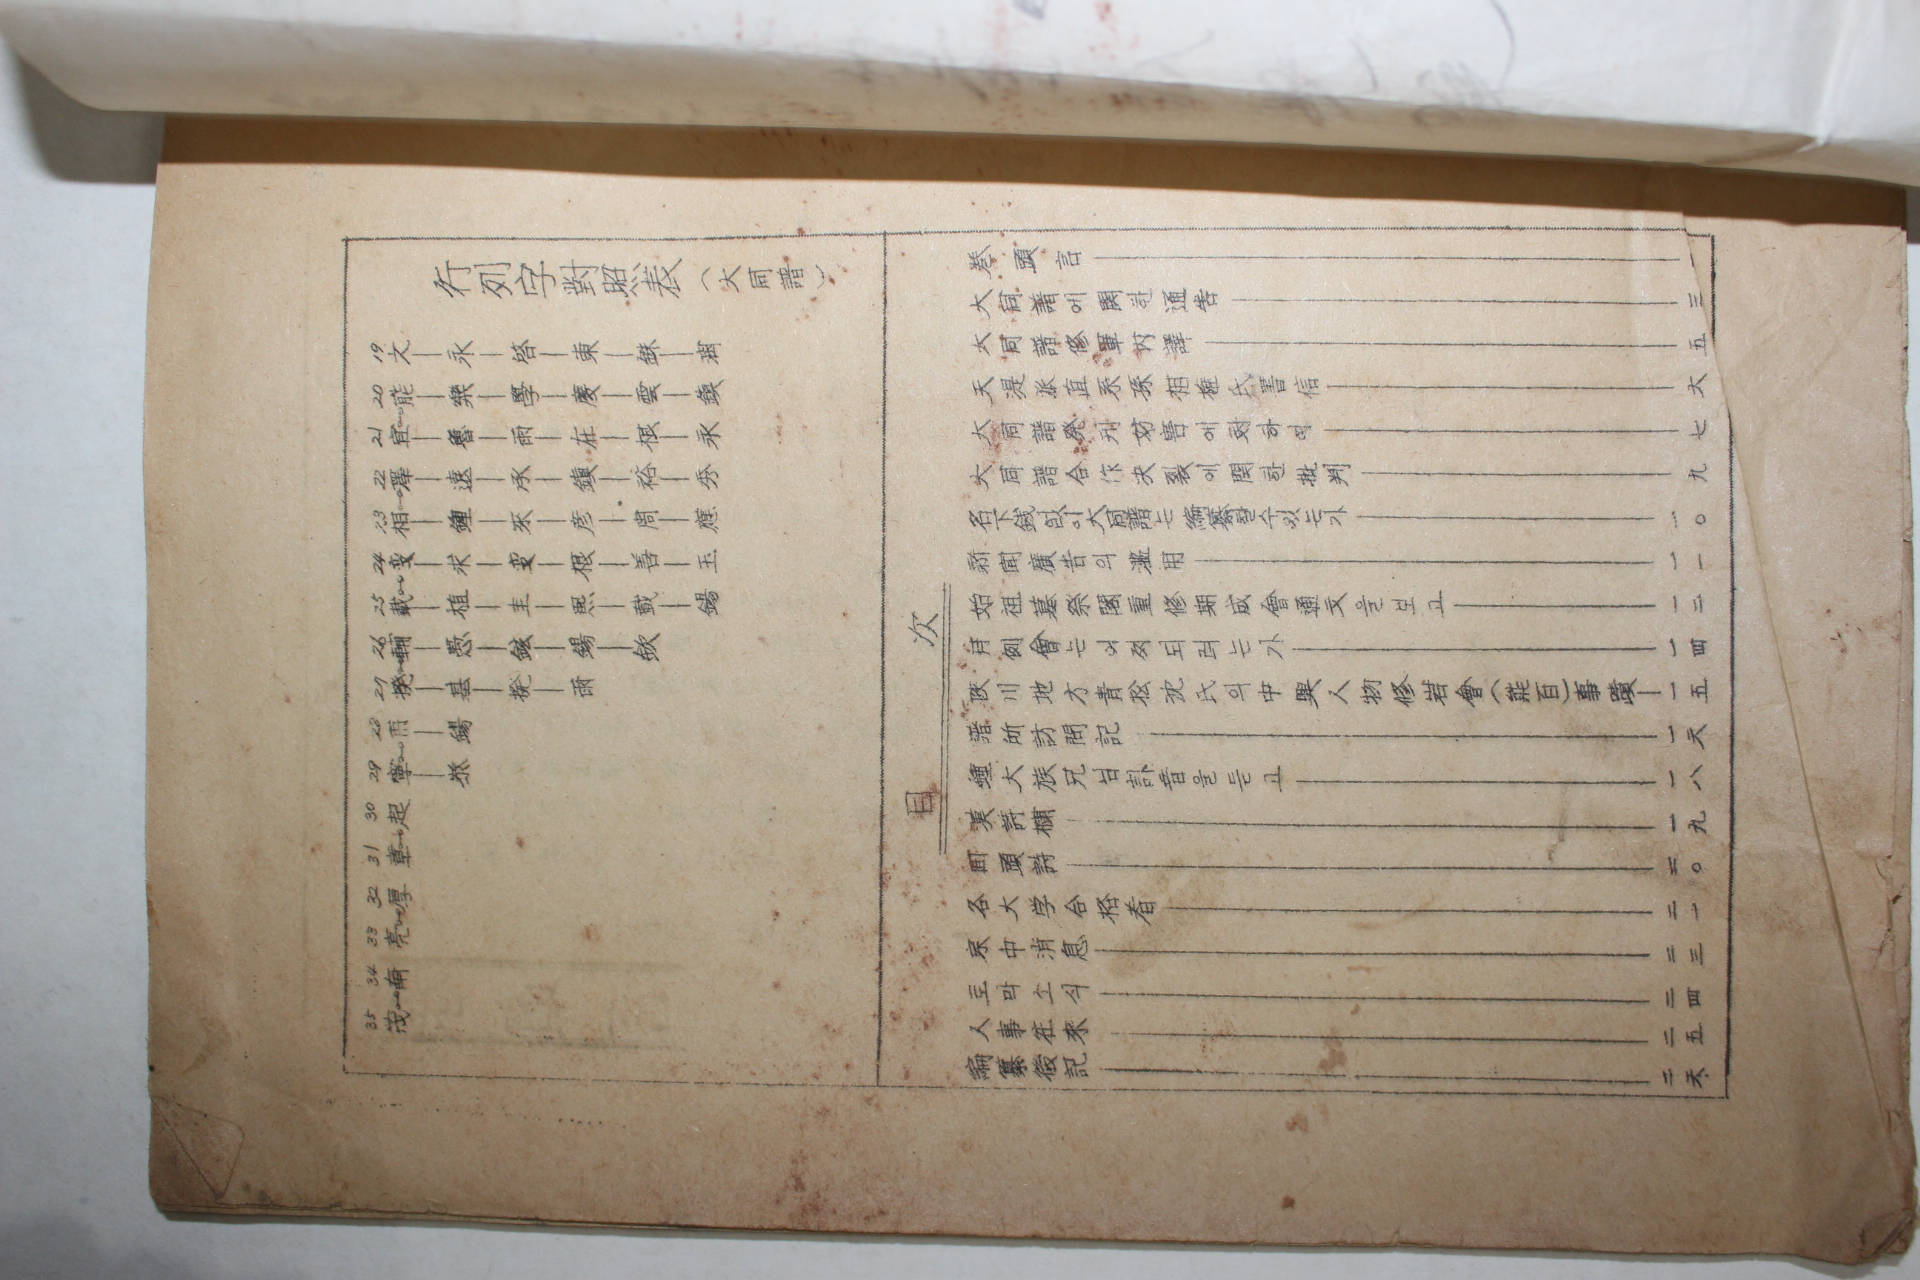 行列字對照表（大同譜）
19 文 永 啓 東 銖
20 能 樂 學 慶 雲 鎮
21 宜 魯 雨 在 根 永
22 澤 遠 承 鎮 裕 秀
23 相 鍾 來 彦 周 應
24 變 求 變 根 善 玉
25 載 植 圭 熙 載 錫
26 輔 愚 鉉 錫 欽
27 揆 基 揆 雨
28 雨 錫
29 寧
30 起
31 章
32 厚
33 亮
34
35 茂
目次
巻頭言 一
大同譜에関한通告 三
大同譜修單内譯 五
天湜派直系孫相權氏書信 六
大同譜発刋妨害에対하여 七
大同譜合作决裂에関한批判 九
名下銭없이大同譜는編纂할수있는가 一〇
新聞廣告의濫用 一一
始祖墓祭閣重修期成會通文을보고 一二
月例會는어찌되려는가 一四
陜川地方青松沈氏의中興人物修岩會(能百)事蹟 一五
譜所訪問記 一六
鍾大族兄님訃音을듣고 一八
漢詩欄 一九
回頭詩 二〇
各大学合格者 二一
宗中消息 二三
토막소식 二四
人事往來 二五
編纂後記 二六